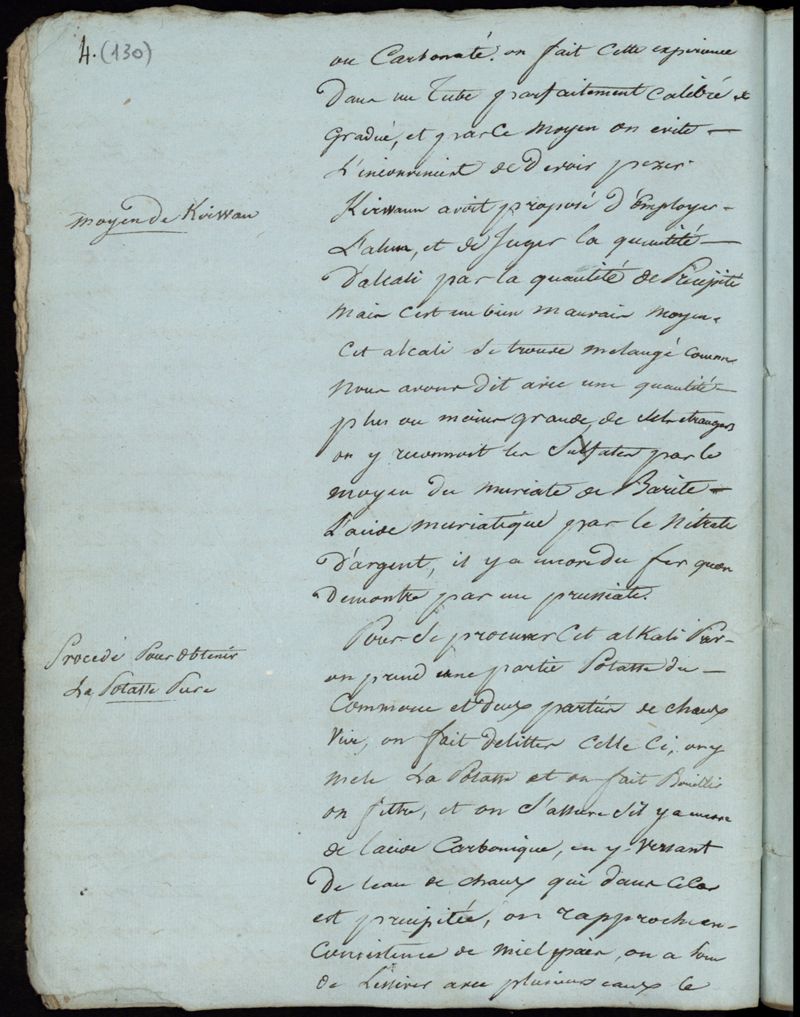 4. (130)
ou Carbonaté. on fait cette experience
Dans un Tube parfaitement Calibré et
Gradué, et par ce moyen on evite
L'inconvenient de Devoir pezer
moyen de Kirwan
Kirwann avoit proposé d'Employer
L'alun, et de Juger la quantité
D'alcali par la quantité de Précipité
Mais c'est un bien mauvais moyen.
Cet alcali se trouve melangé comme
Nous avons dit avec une quantité
plus ou moins grande de sels etrangers
on y reconnoit les Sulfates par le
moyen du muriate de Barite
L'acide muriatique par le Nitrate
D'argent, il y a encore du fer qu'on
Demontre par un prussiate.
Procedé Pour obtenir
La Potasse Pure
Pour se procurer Cet alkali Pur
on prend une partie Potasse du
Commerce et deux parties de chaux
Vive, on fait deliter Celle Ci, on y
mele La Potasse et on fait Bouillir
on filtre, et on s'assure s'il y a encore
de l'acide Carbonique, en y versant
De l'eau de chaux qui dans ce Cas
est precipitée, on rapproche en
Consistence de miel epais, on a soin
de Lessiver avec plusieurs eaux le